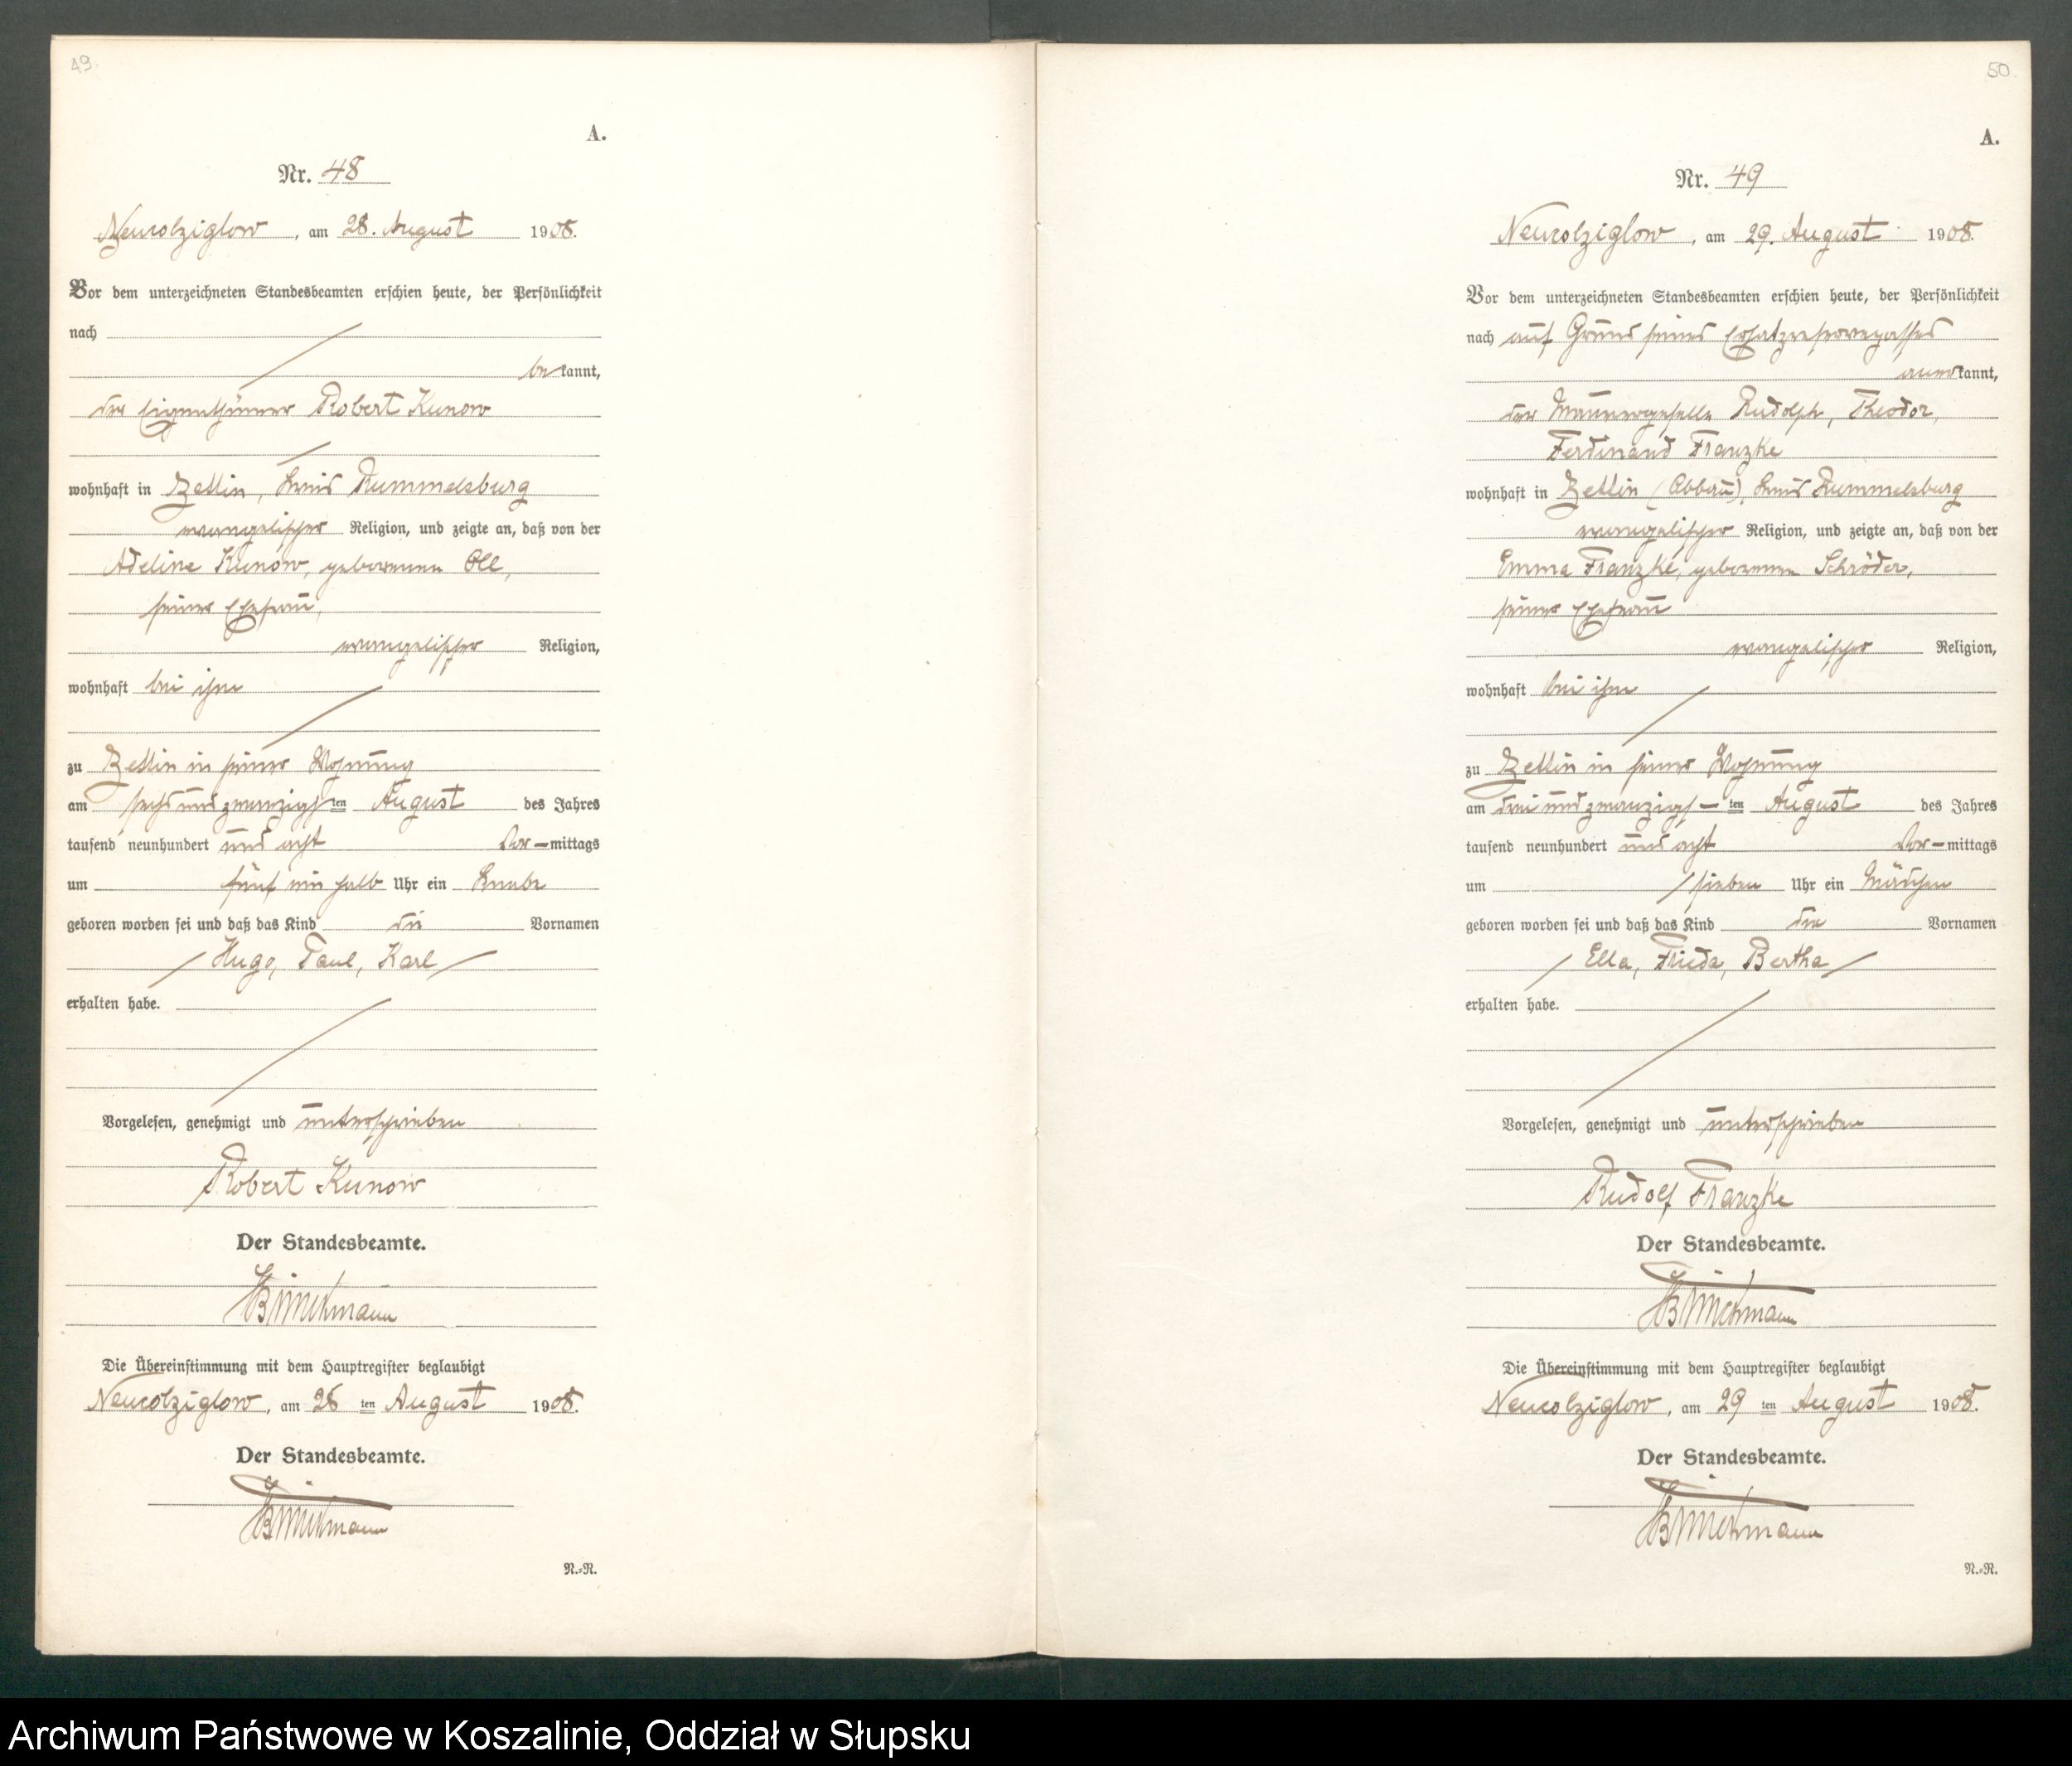 49.
A.
Nr. 48
Neukolziglow, am 28. August 1908.
Vor dem unterzeichneten Standesbeamten erschien heute, der Persönlichkeit
nach
bekannt,
der Eigenthümer Robert Kunow
wohnhaft in Zettin, Kreis Rummelsburg
evangelischer Religion, und zeigte an, daß von der
Adeline Kunow, geborenen Oll,
seiner Ehefrau,
evangelischer Religion,
wohnhaft bei ihm
zu Zettin in seiner Wohnung
am sechsundzwanzigsten August des Jahres
tausend neunhundert und acht Vor-mittags
um fünf ein halb Uhr ein Knabe
geboren worden sei und daß das Kind die Vornamen
Hugo, Paul, Karl
erhalten habe.
Vorgelesen, genehmigt und unterschrieben
Robert Kunow
Der Standesbeamte.
Die Übereinstimmung mit dem Hauptregister beglaubigt
Neukolziglow, am 28 ten August 1908.
Der Standesbeamte.
N.=R.
50.
A.
Nr. 49
Neukolziglow, am 29. August 1908.
Vor dem unterzeichneten Standesbeamten erschien heute, der Persönlichkeit
nach auf Grund seines Ersatzreservepasses
anerkannt,
der Maurergeselle Rudolph, Theodor,
Ferdinand Franzke
wohnhaft in Zettin (Abbau), Kreis Rummelsburg
evangelischer Religion, und zeigte an, daß von der
Emma Franzke, geborenen Schröder,
seiner Ehefrau
evangelischer Religion,
wohnhaft bei ihm
zu Zettin in seiner Wohnung
am dreiundzwanzigs-ten August des Jahres
tausend neunhundert und acht Vor-mittags
um sieben Uhr ein Mädchen
geboren worden sei und daß das Kind die Vornamen
Ella, Frieda, Bertha
erhalten habe.
Vorgelesen, genehmigt und unterschrieben
Rudolf Franzke
Der Standesbeamte.
Die Übereinstimmung mit dem Hauptregister beglaubigt
Neukolziglow, am 29 ten August 1908.
Der Standesbeamte.
N.=R.
Archiwum Państwowe w Koszalinie, Oddział w Słupsku